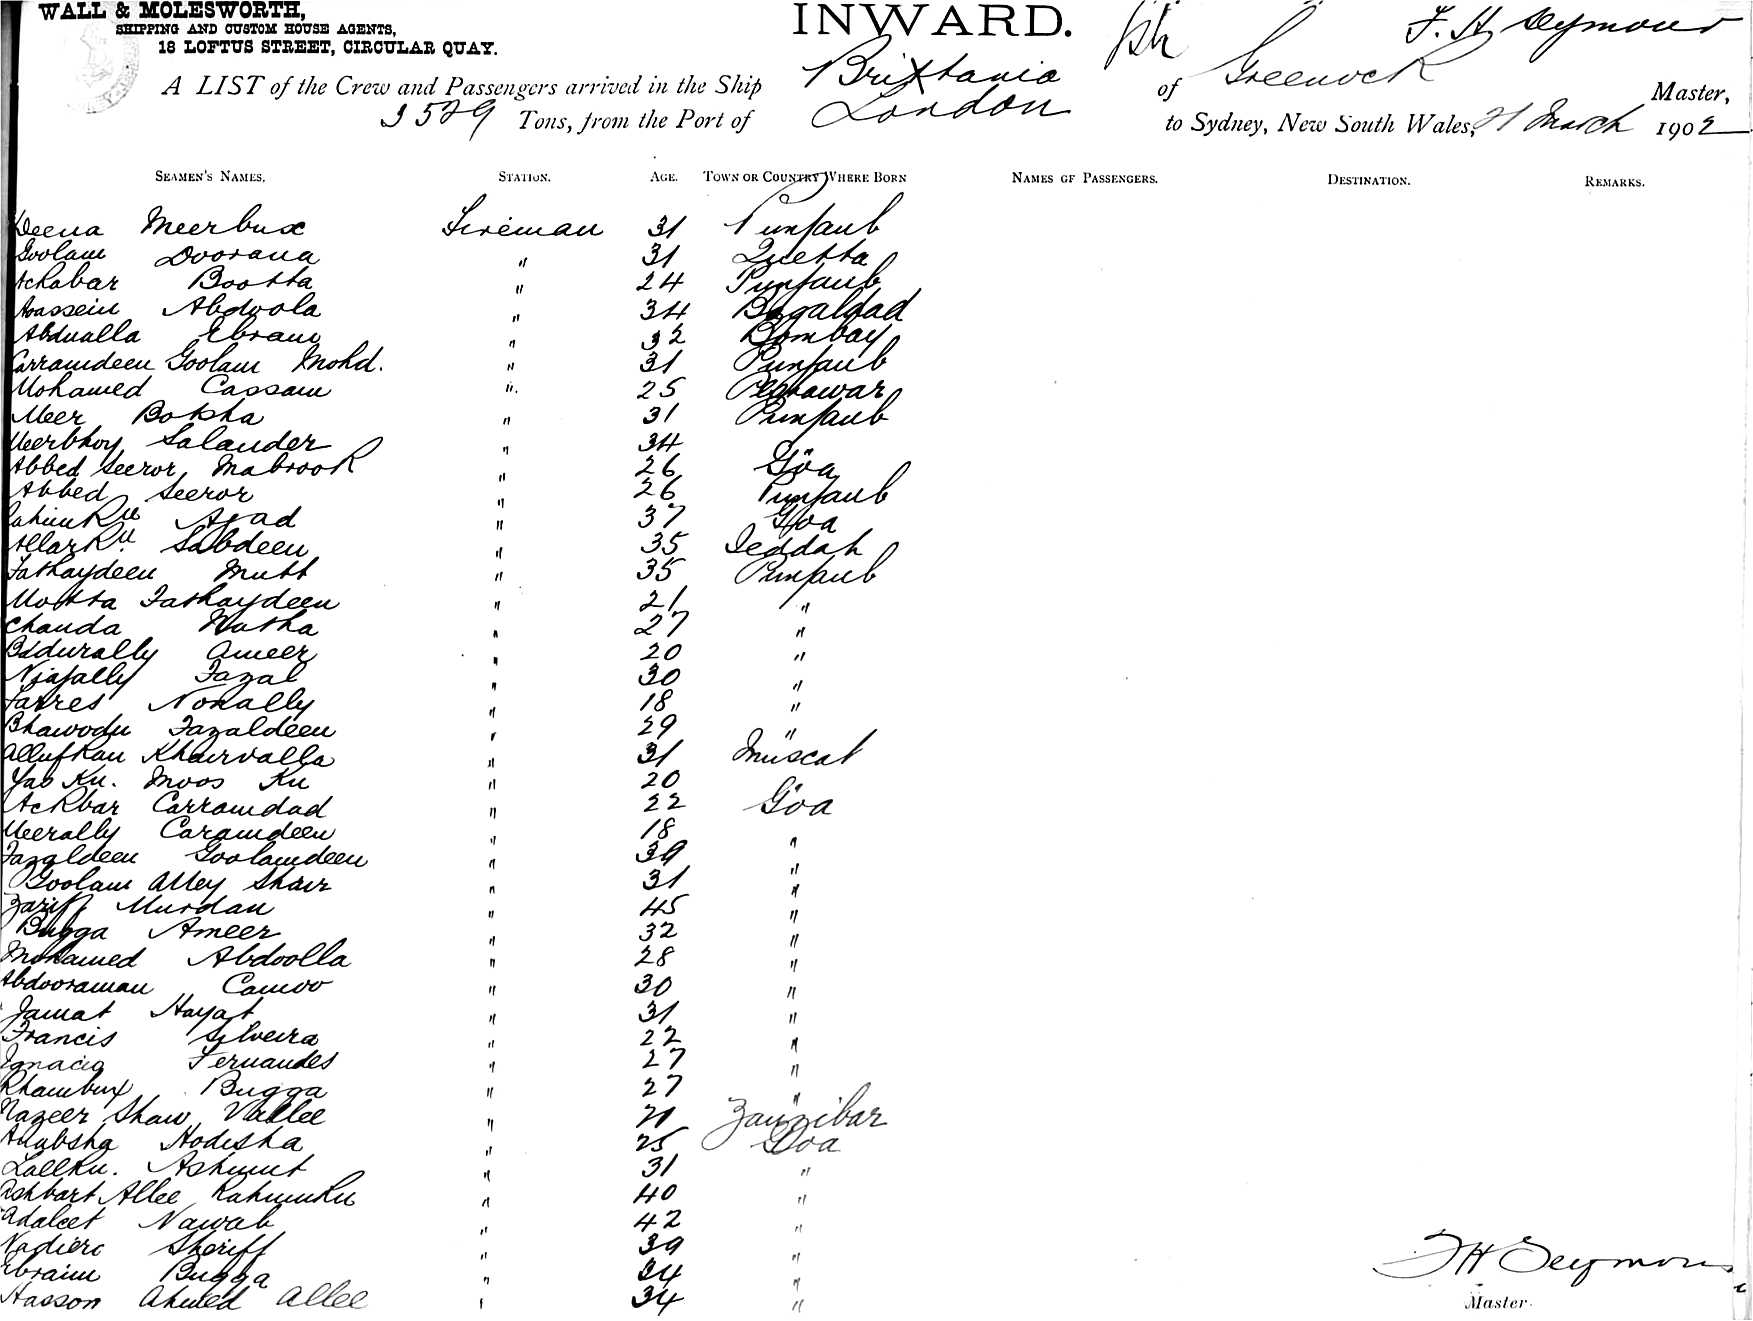 WALL & MOLESWORTH,
SHIPPING AND CUSTOM HOUSE AGENTS,
18 LOFTUS STREET, CIRCULAR QUAY.
INWARD.
A LIST of the Crew and Passengers arrived in the Ship Brixtania of Greenock F. H. Seymour Master,
3529 Tons, from the Port of London to Sydney, New South Wales, 21 March 1902
SEAMEN'S NAMES. STATION. AGE. TOWN OR COUNTRY WHERE BORN NAMES OF PASSENGERS. DESTINATION. REMARKS.
Deena Meerbux Fireman 31 Punjaub
Goolam Doorana " 31 Quetta
Achabar Bootta " 24 Punjaub
Hassein Abdoola " 34 Bagaldad
Abdualla Ebram " 32 Bombay
Carramdeen Goolam Mohd. " 31 Punjaub
Mohamed Cassam " 25
Meer Boksha " 31 Punjaub
Meerbhoy Salander " 34
Abbed Seeror Mabrook " 26 Goa
Abbed Seeror " 26 Punjaub
Asad " 37 Goa
Sabdeen " 35 Jeddah
Fathaydeen Mutt " 35 Punjaub
Motta Fathaydeen " 21 "
Chanda Natha " 27 "
Bddurally Ameer " 20 "
Njafally Fazal " 30 "
Fatres Norally " 18 "
Bhawoodu Fazaldeen " 29 "
Allufkan Khairvalla " 31 Muscat
Yao Ku. Moos Ku " 20
Ackbar Carramdad " 22 Goa
Meerally Caramdeen " 18 "
Fazaldeen Goolamdeen " 39 "
Goolam Alley Shair " 31 "
Zariff Murdan " 45 "
Bugga Ameer " 32 "
Mohamed Abdoolla " 28 "
Abdooraman Camoo " 30 "
Jamat Hayat " 31 "
Francis Silveira " 22 "
Ignacio Fernandes " 27 "
Khambux Bugga " 27 "
Nazeer Shaw Vallee " 21 Zanzibar
Hodisha " 25 Goa
Lallku. Ashmut " 31 "
Ashbart Allee Rahumku " 40 "
Adaleet Nawab " 42 "
Nadiero Sheriff " 39 "
Ebraim Bugga " 34 "
Hasson Ahmed Allee " 34 "
F H Seymour
Master.